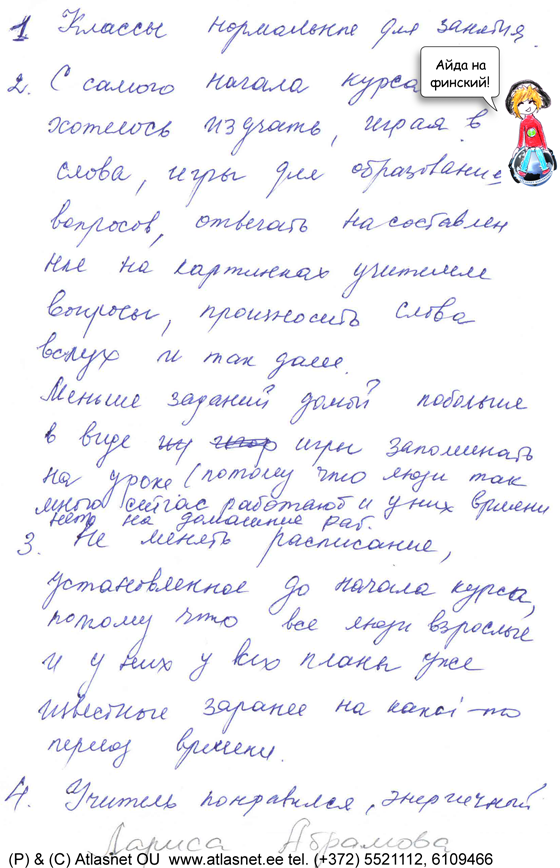 1 Классы нормальные для занятия.
2. С самого начала курса
Айда на
финский!
хотелось изучать, играя в
слова, игры для образование
вопросов, отвечать на составлен
ные на картинках учителем
вопросы, произносить слова
вслух и так далее.
Меньше заданий домой побольше
в виде игры запоминать
на уроке (потому что люди так
много сейчас работают и у них времени
нет на домашние раб.
3. Не менять расписание,
установленное до начала курса,
потому что все люди взрослые
и у них у всех планы уже
известные заранее на какой-то
период времени.
4. Учитель понравился, энергичный
Лариса Абрамова
(P) & (C) Atlasnet OU www.atlasnet.ee tel. (+372) 5521112, 6109466